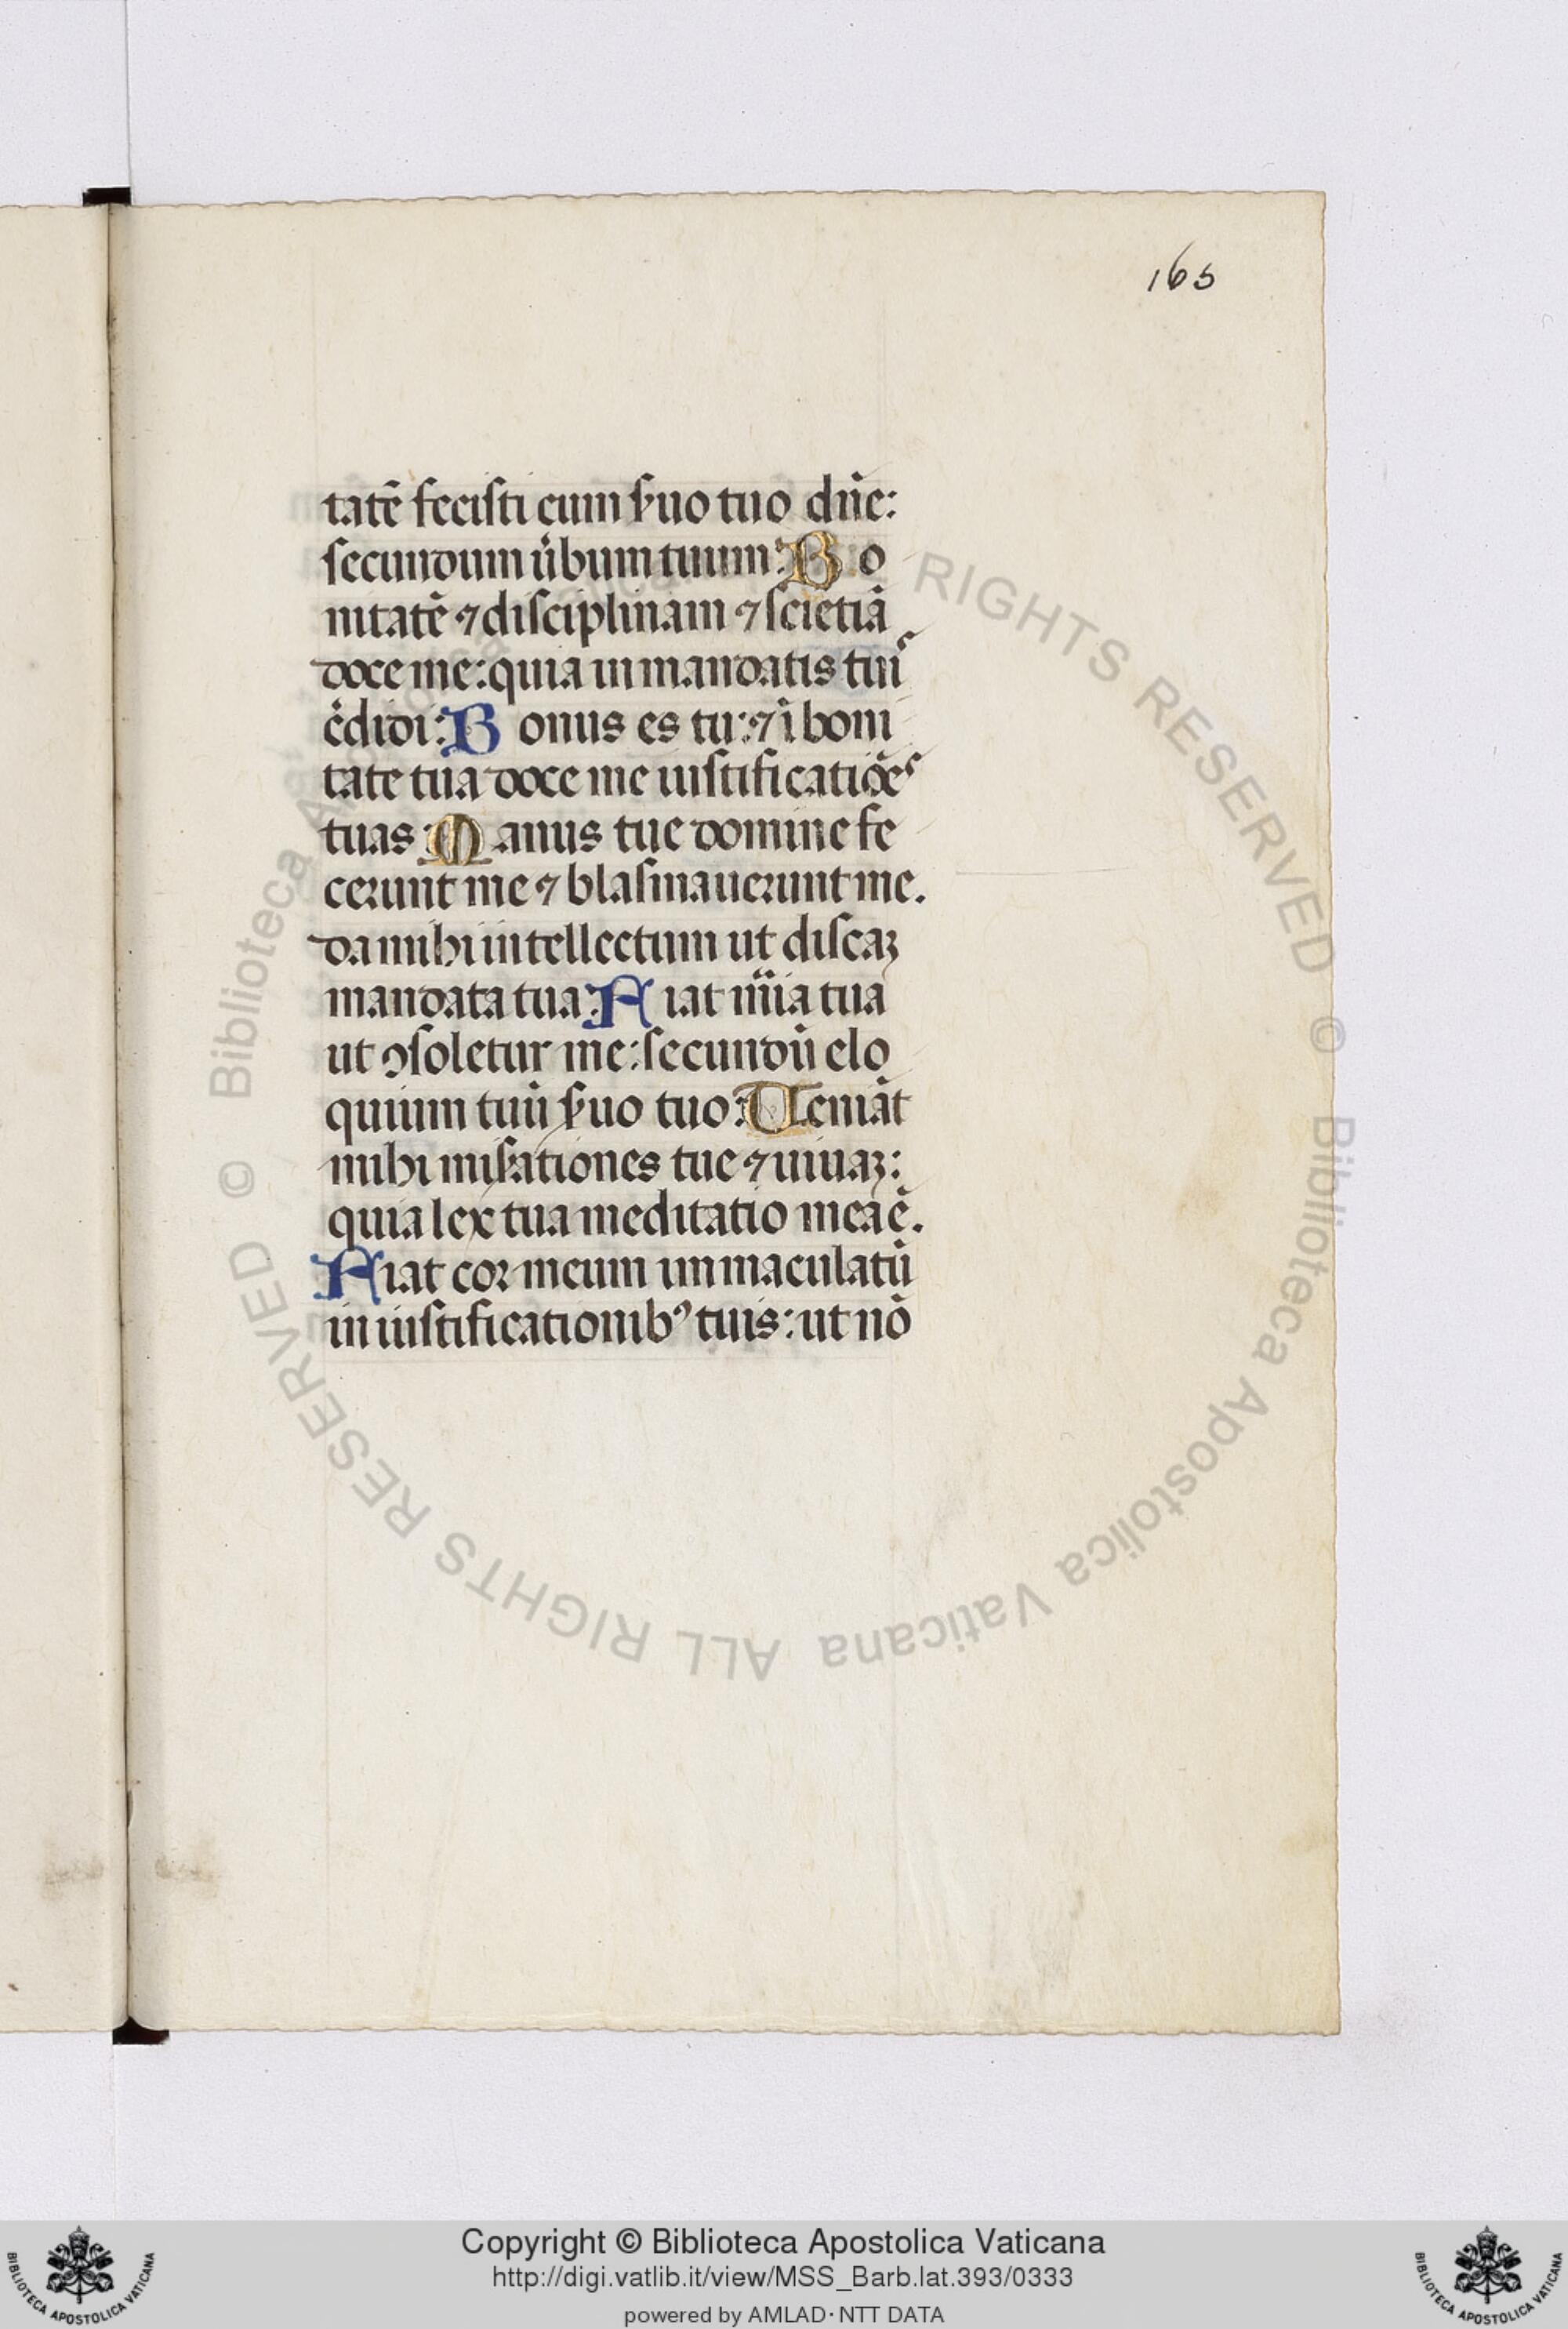 165
tatē feciſti cum ſ̓uo tuo dn̄e:
ſecundum u̓bum tuum: Bo
nitatē ⁊ diſciplinam ⁊ ſciētiā
doce me: quia in mandatis tuiˢ
c̓didi: Bonus es tu: ⁊ ī boni
tate tua doce me iuſtificatiōeˢ
tuas: Manus tue domine fe
cerunt me ⁊ blaſmauerunt me.
da mihi intellectum ut diſcaꝫ
mandata tua: Fiat mīa tua
ut ꝯſoletur me: ſecundū elo
quium tuū ſ̓uo tuo: Ueniāt
mihi miſ̓ationes tue ⁊ uiuaꝫ:
quia lex tua meditatio mea ē.
Fiat cor meum immaculatū
in iuſtificationibꝰ tuis: ut nō
© Biblioteca Apostolica Vaticana ALL RIGHTS RESERVED
© Biblioteca Apostolica Vaticana ALL RIGHTS RESERVED
Copyright © Biblioteca Apostolica Vaticana
http://digi.vatlib.it/view/MSS_Barb.lat.393/0333
powered by AMLAD·NTT DATA
BIBLIOTECA APOSTOLICA VATICANA
BIBLIOTECA APOSTOLICA VATICANA